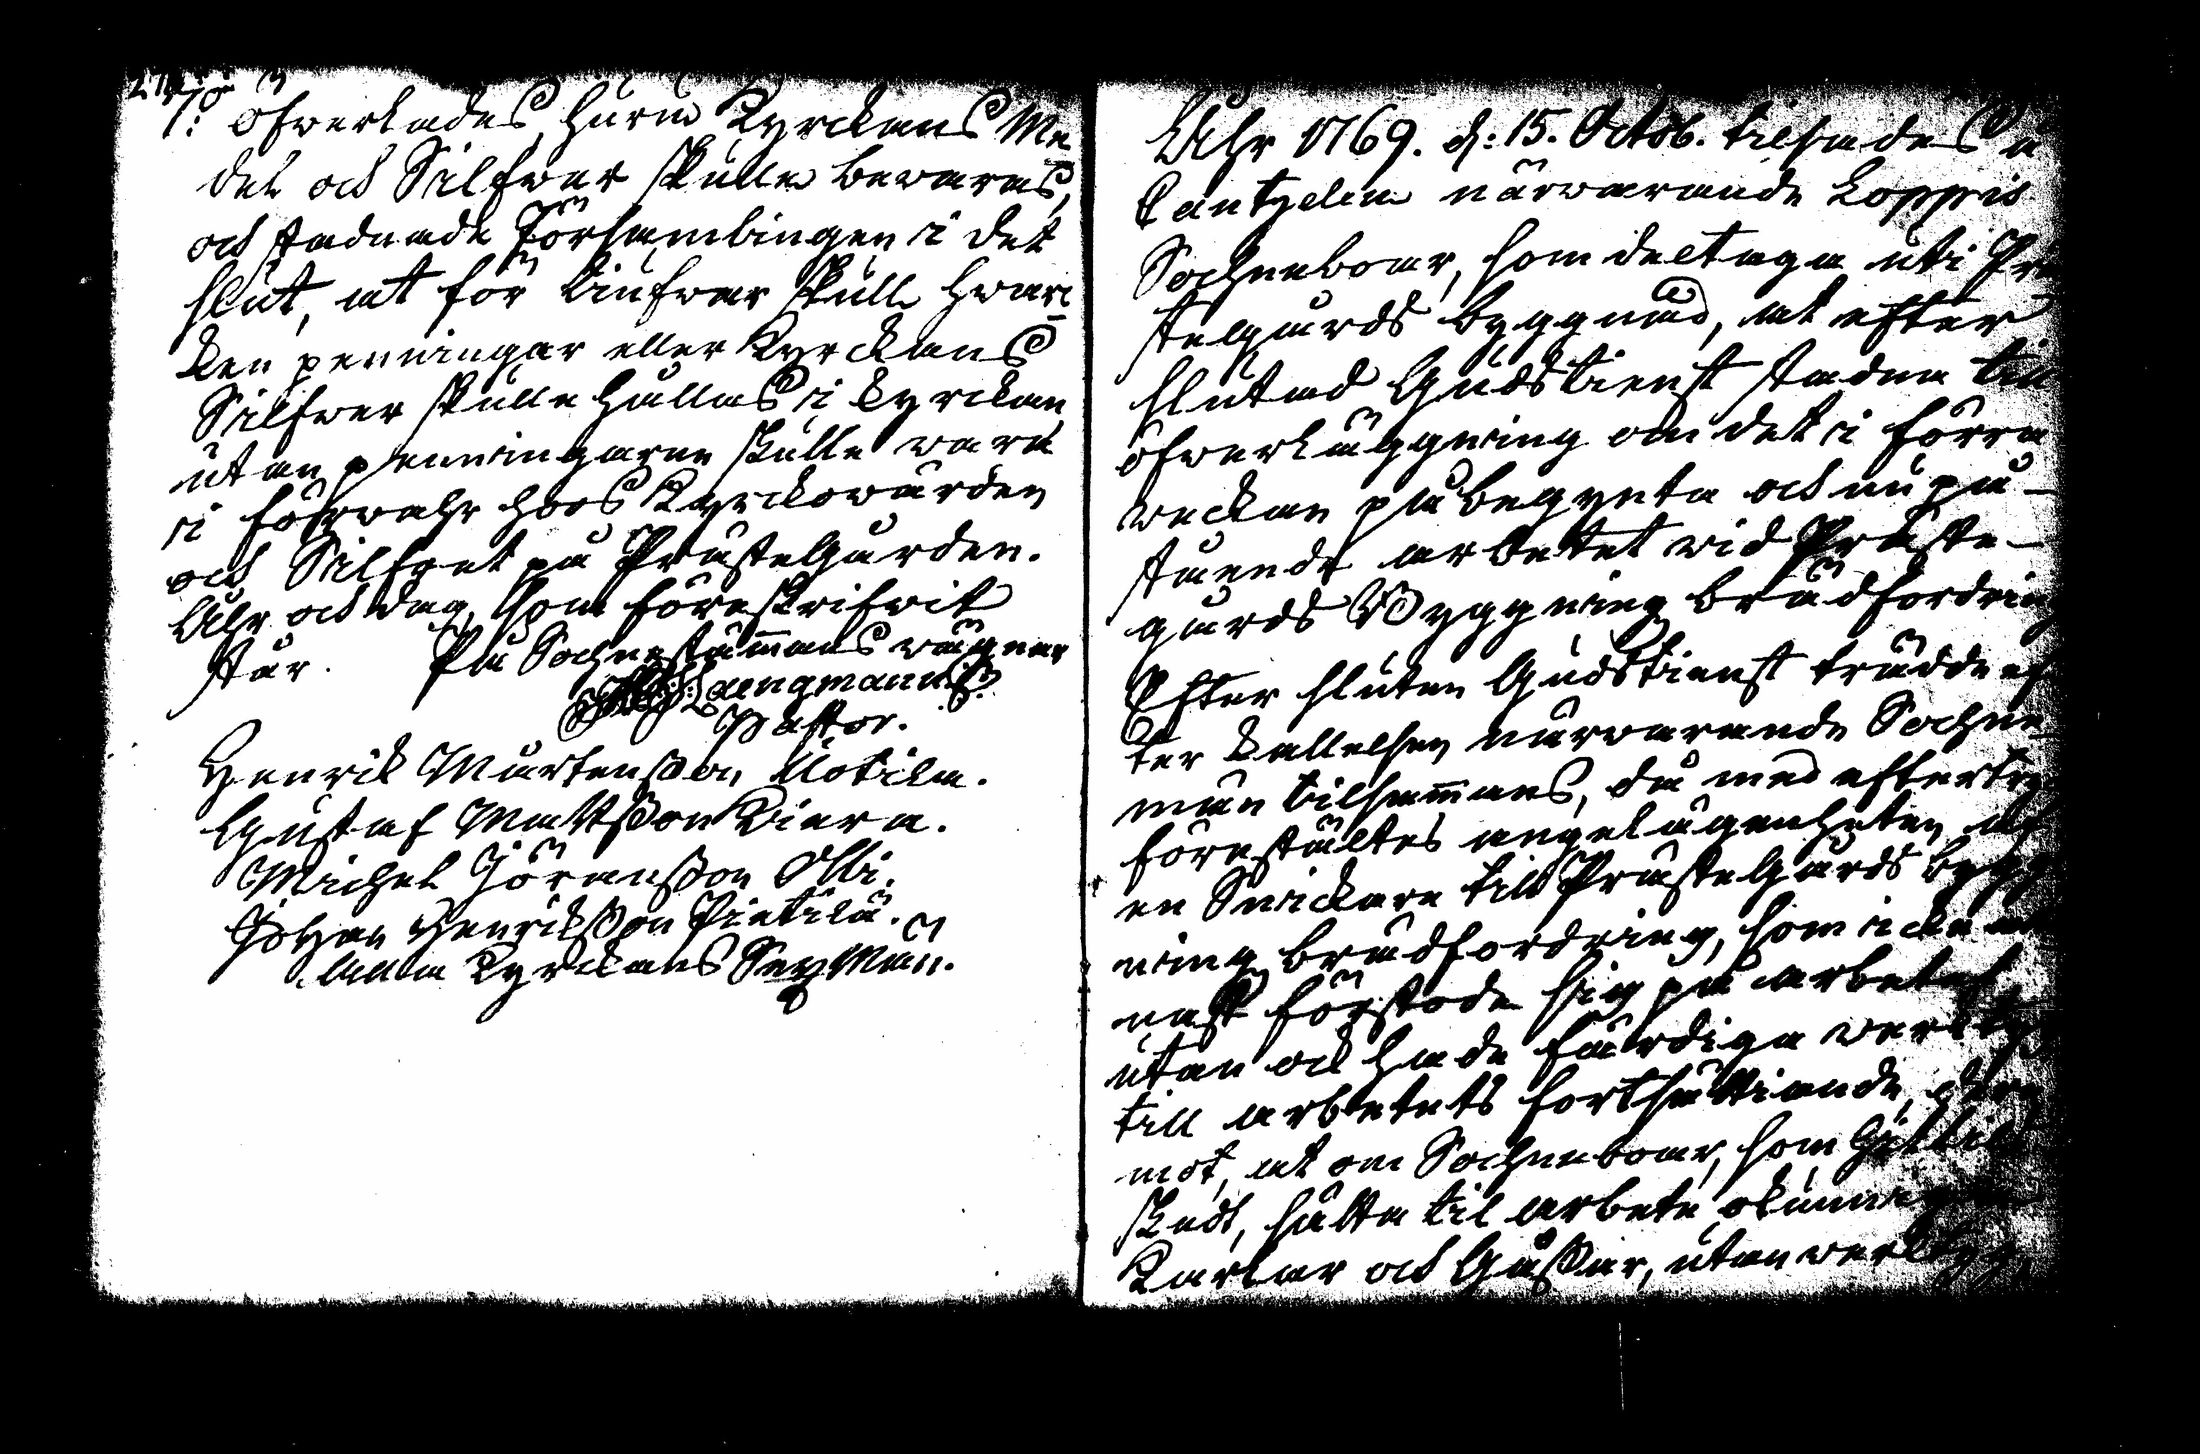 7:o öfverlades, huru Kyrckans Me
del och Silfwer skulle bewaras,
och stadnade Församlingen i det
slut, at för tiufwar skull hwar-
ken penningar eller Kyrckans
Silfwer skulle hållas i kyrckan
utan penningarne skulle wara
i förwahr hoos Kyrckowärden
och Silfret på Prästegården.
Åhr och dag, som föreskrifwit
står. På Sochnestämans wägnar
Laengmann
Pastor.
Henrik Mårtensson, Uotila.
Gustaf Mattsson Kiara.
Michel Jöransson Olli.
Johan Henricksson Pietilä.
Alla Kyrckans Sex Män.
Åhr 1769. d: 15. Octob. tilsades a
Cantzelen närwarande Loppis
Sochneboar, som deltaga uti Prä
stegårds byggnad, at efter
slutad Gudstienst stadna till
öfwerläggning om det i förra
weckan påbegynta och nu på-
stående arbetet wid Präste-
gårds Byggning brådfordring
Efter sluten Gudstienst trädde ef
ter kallelsen närwarande Sochne
män tilsammans, då med eftertry
förestältes angelägenheten af
en Snickare till Prästegårds bygg
ning brådfordring, som icke al
nast förstode sig på arbetet
utan ock hade färdiga werktyg
till arbetets fortsättiande,
mot, at om Sochneboar, som hit til
skedt, sätta til arbete okunnige
Karlar och Gåssar, utan werktyg,